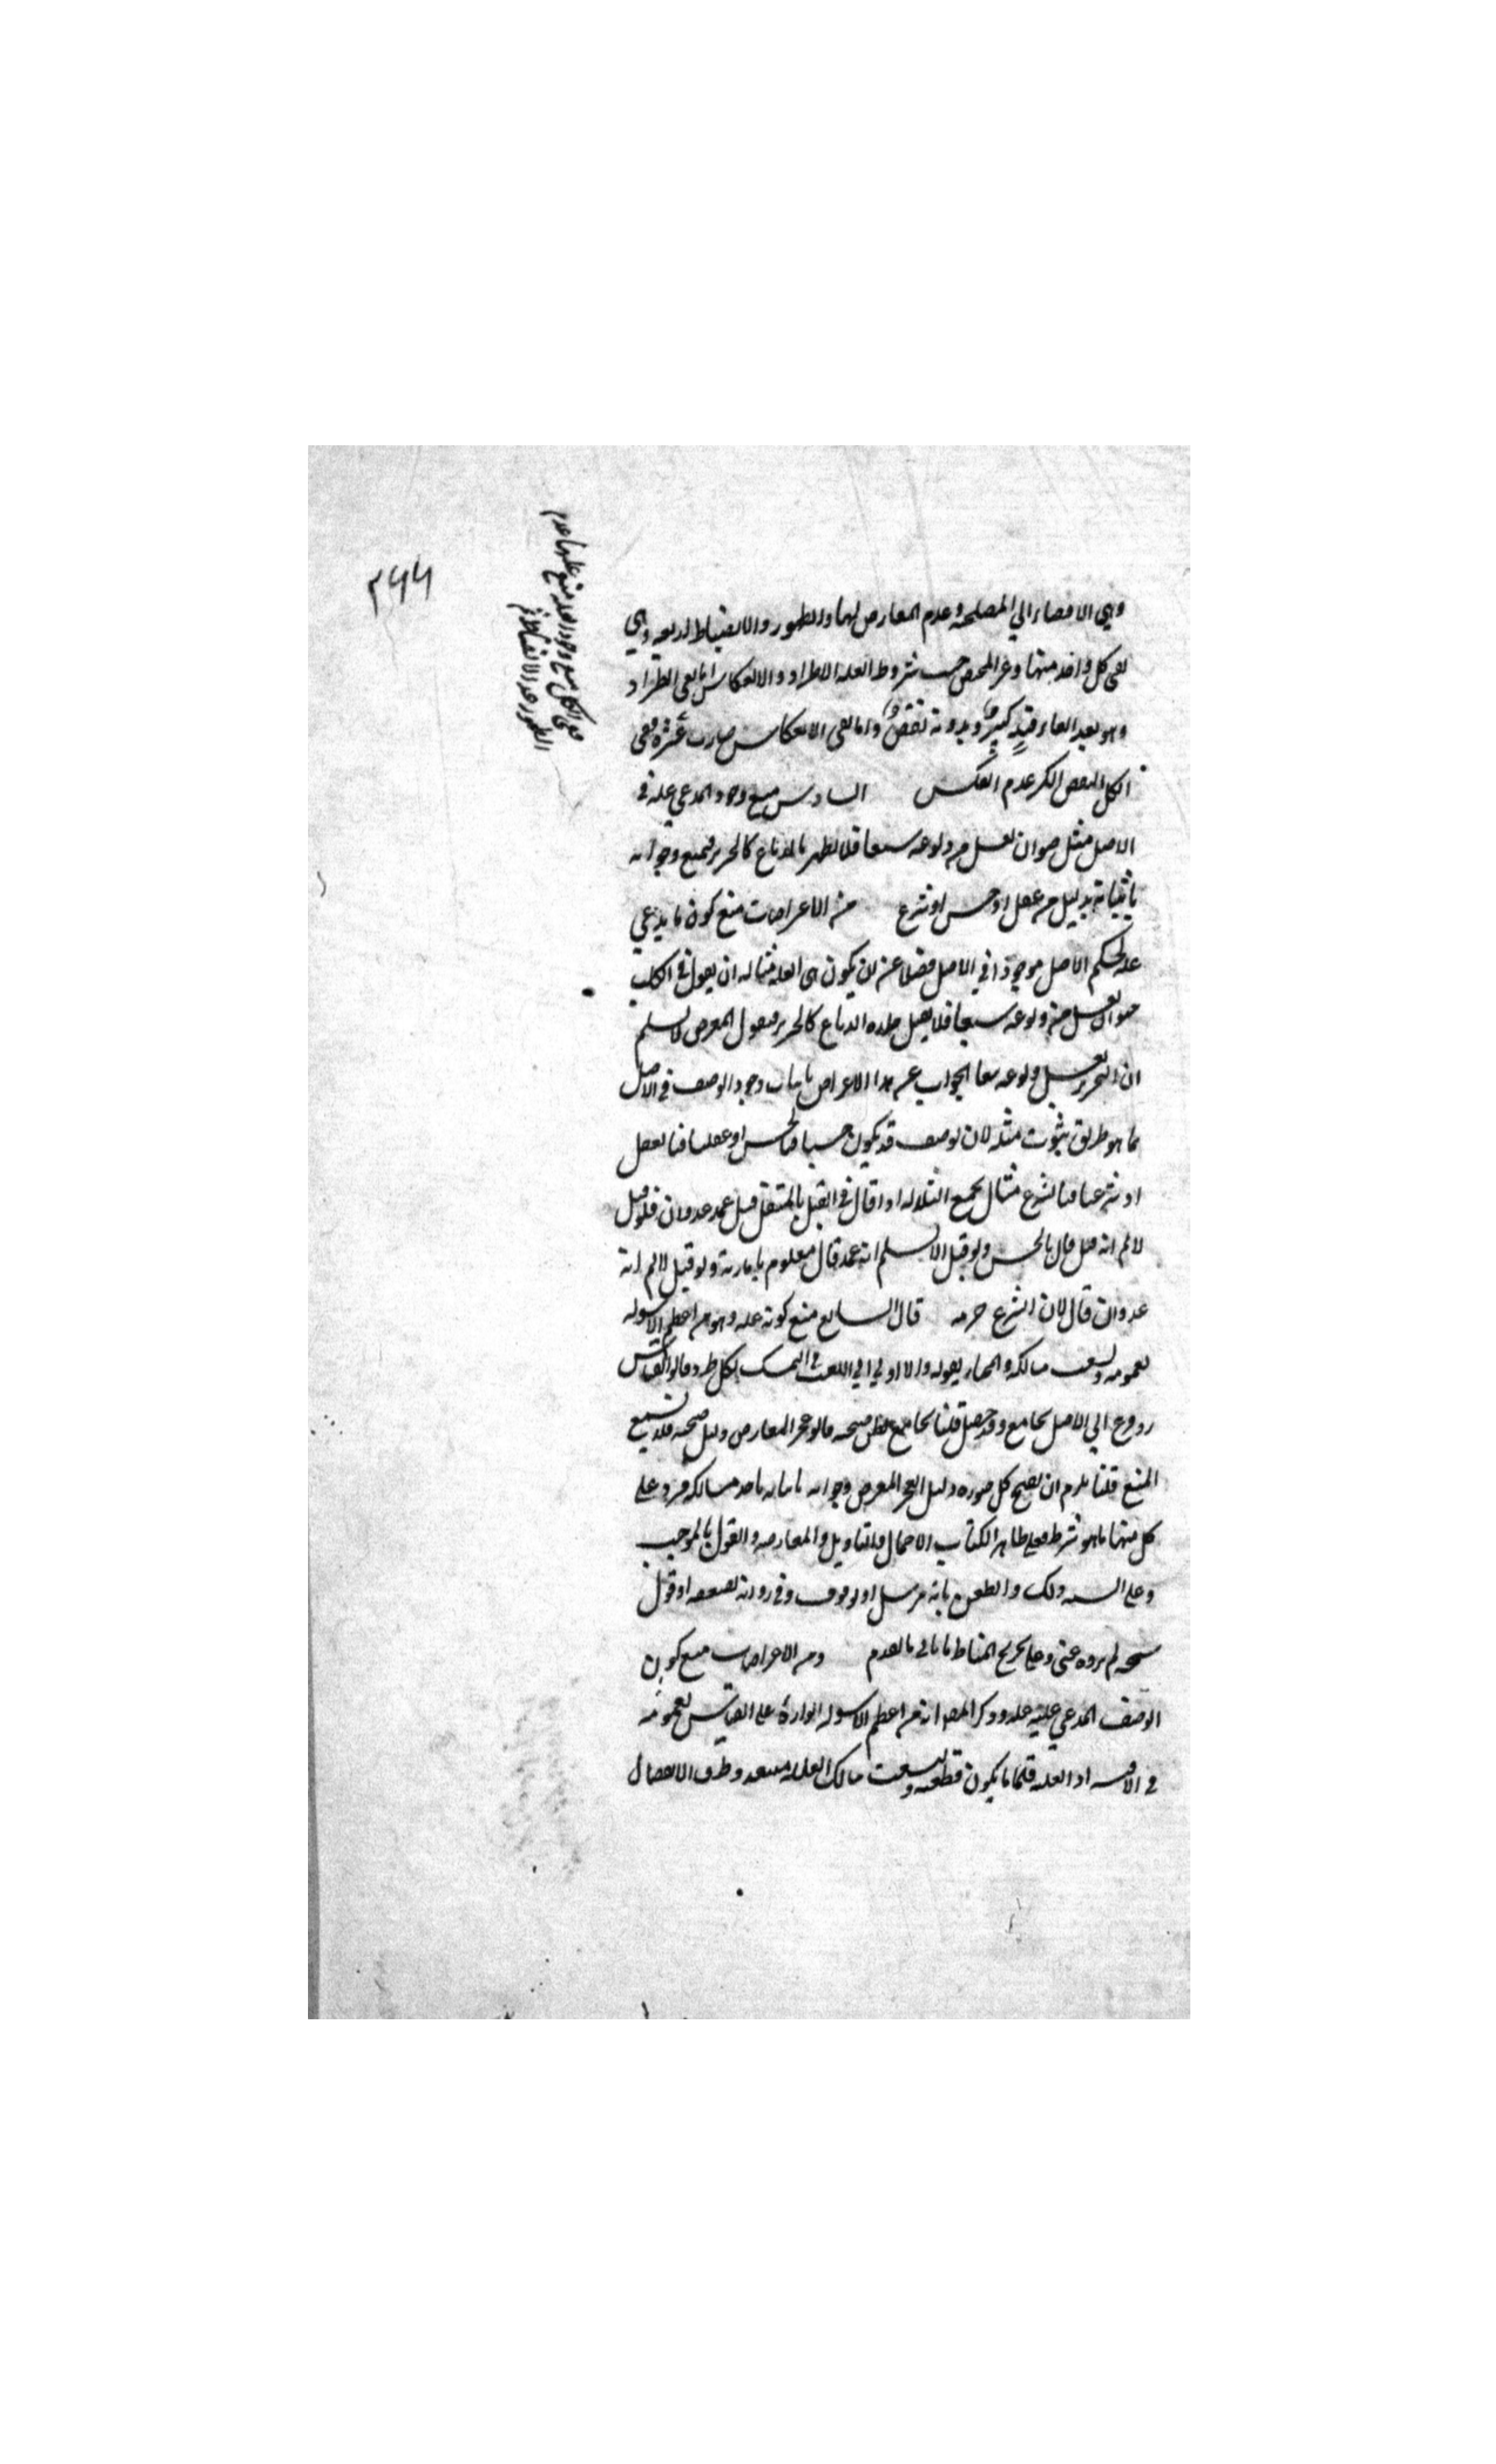 ٢٦٦
وهي الافضاء الي المصلحه وعدم المعارض لها والظهور والانضباط اربعه وهي
نفي كل واحد منها وغير المختص حسب شروط العله الاطراد والانعكاس اما نفي الطراد
وهو بعد الغاء قيد كسر وبدونه نقض واما نفي الانعكاس صارت عشره ففي
الكل النقض الكسر عدم العكس السادس منع وجود المدعي عله في
الاصل مثل حيوان يغسل من ولوغه سبعا فلا يطهر بالدباغ كالخنزير فيمنع وجوابه
باثباته بدليل من عقل او حس او شرع من الاعراضات منع كون ما يدعي
عله لحكم الاصل موجودا في الاصل فضلا عن ان يكون هي العله مثاله ان يقول في الكلب
حيوان يغسل من ولوغه سبعا فلا يقبل جلده الدباغ كالخنزير فيقول المعرض لا نسلم
ان الخنزير يغسل ولوغه سبعا الجواب عن هذا الاعراض باثبات وجود الوصف في الاصل
بما هو طريق ثبوت مثله لان الوصف قد يكون حسيا فبالحس او عقليا فبالعقل
او شرعيا فبالشرع مثال يجمع الثلاثه اذا قال في القتل بالمثقل قتل عمد عدوان فلو قيل
لا نم انه قتل قال بالحس ولو قيل لا نسلم انه عمد قال معلوم بامارته ولو قيل لا نم انه
عدوان قال لان الشرع حرمه قال السابع منع كونه عله وهو من اعظم الاسوله
لعمومه وتشعب مسالكه والمختار قبوله والا ادي الي اللعب في التمسك بكل طرد قالوا القياس
رد فرع الي الاصل بجامع وقد حصل قلنا بجامع يظن صحته قالوا عجز المعارض دليل صحته فلا يسمع
المنع قلنا يلزم ان يصح كل صوره دليل العجز المعرض وجوابه باثباته باحد مسالكه فيرد علي
كل منها ما هو شرط فعلي ظاهر الكتاب الاجمال والتاويل والمعارضه والقول بالموجب
وعلي السنه ذلك والطعن بانه مرسل او موقوف وفي روايه بضعفه او قول
شيخه لم يروه عني وعلي تخريج المناط ما ياتي وما تقدم ومن الاعراضات منع كون
الوصف المدعي عليته عله وذكر المص انه من اعظم الاسوله الوارده علي القياس لعمومه
في الاقيسه اذ العله قلما يكون قطعيه وتشعب مسالك العله متعدد وطرق الانفصال